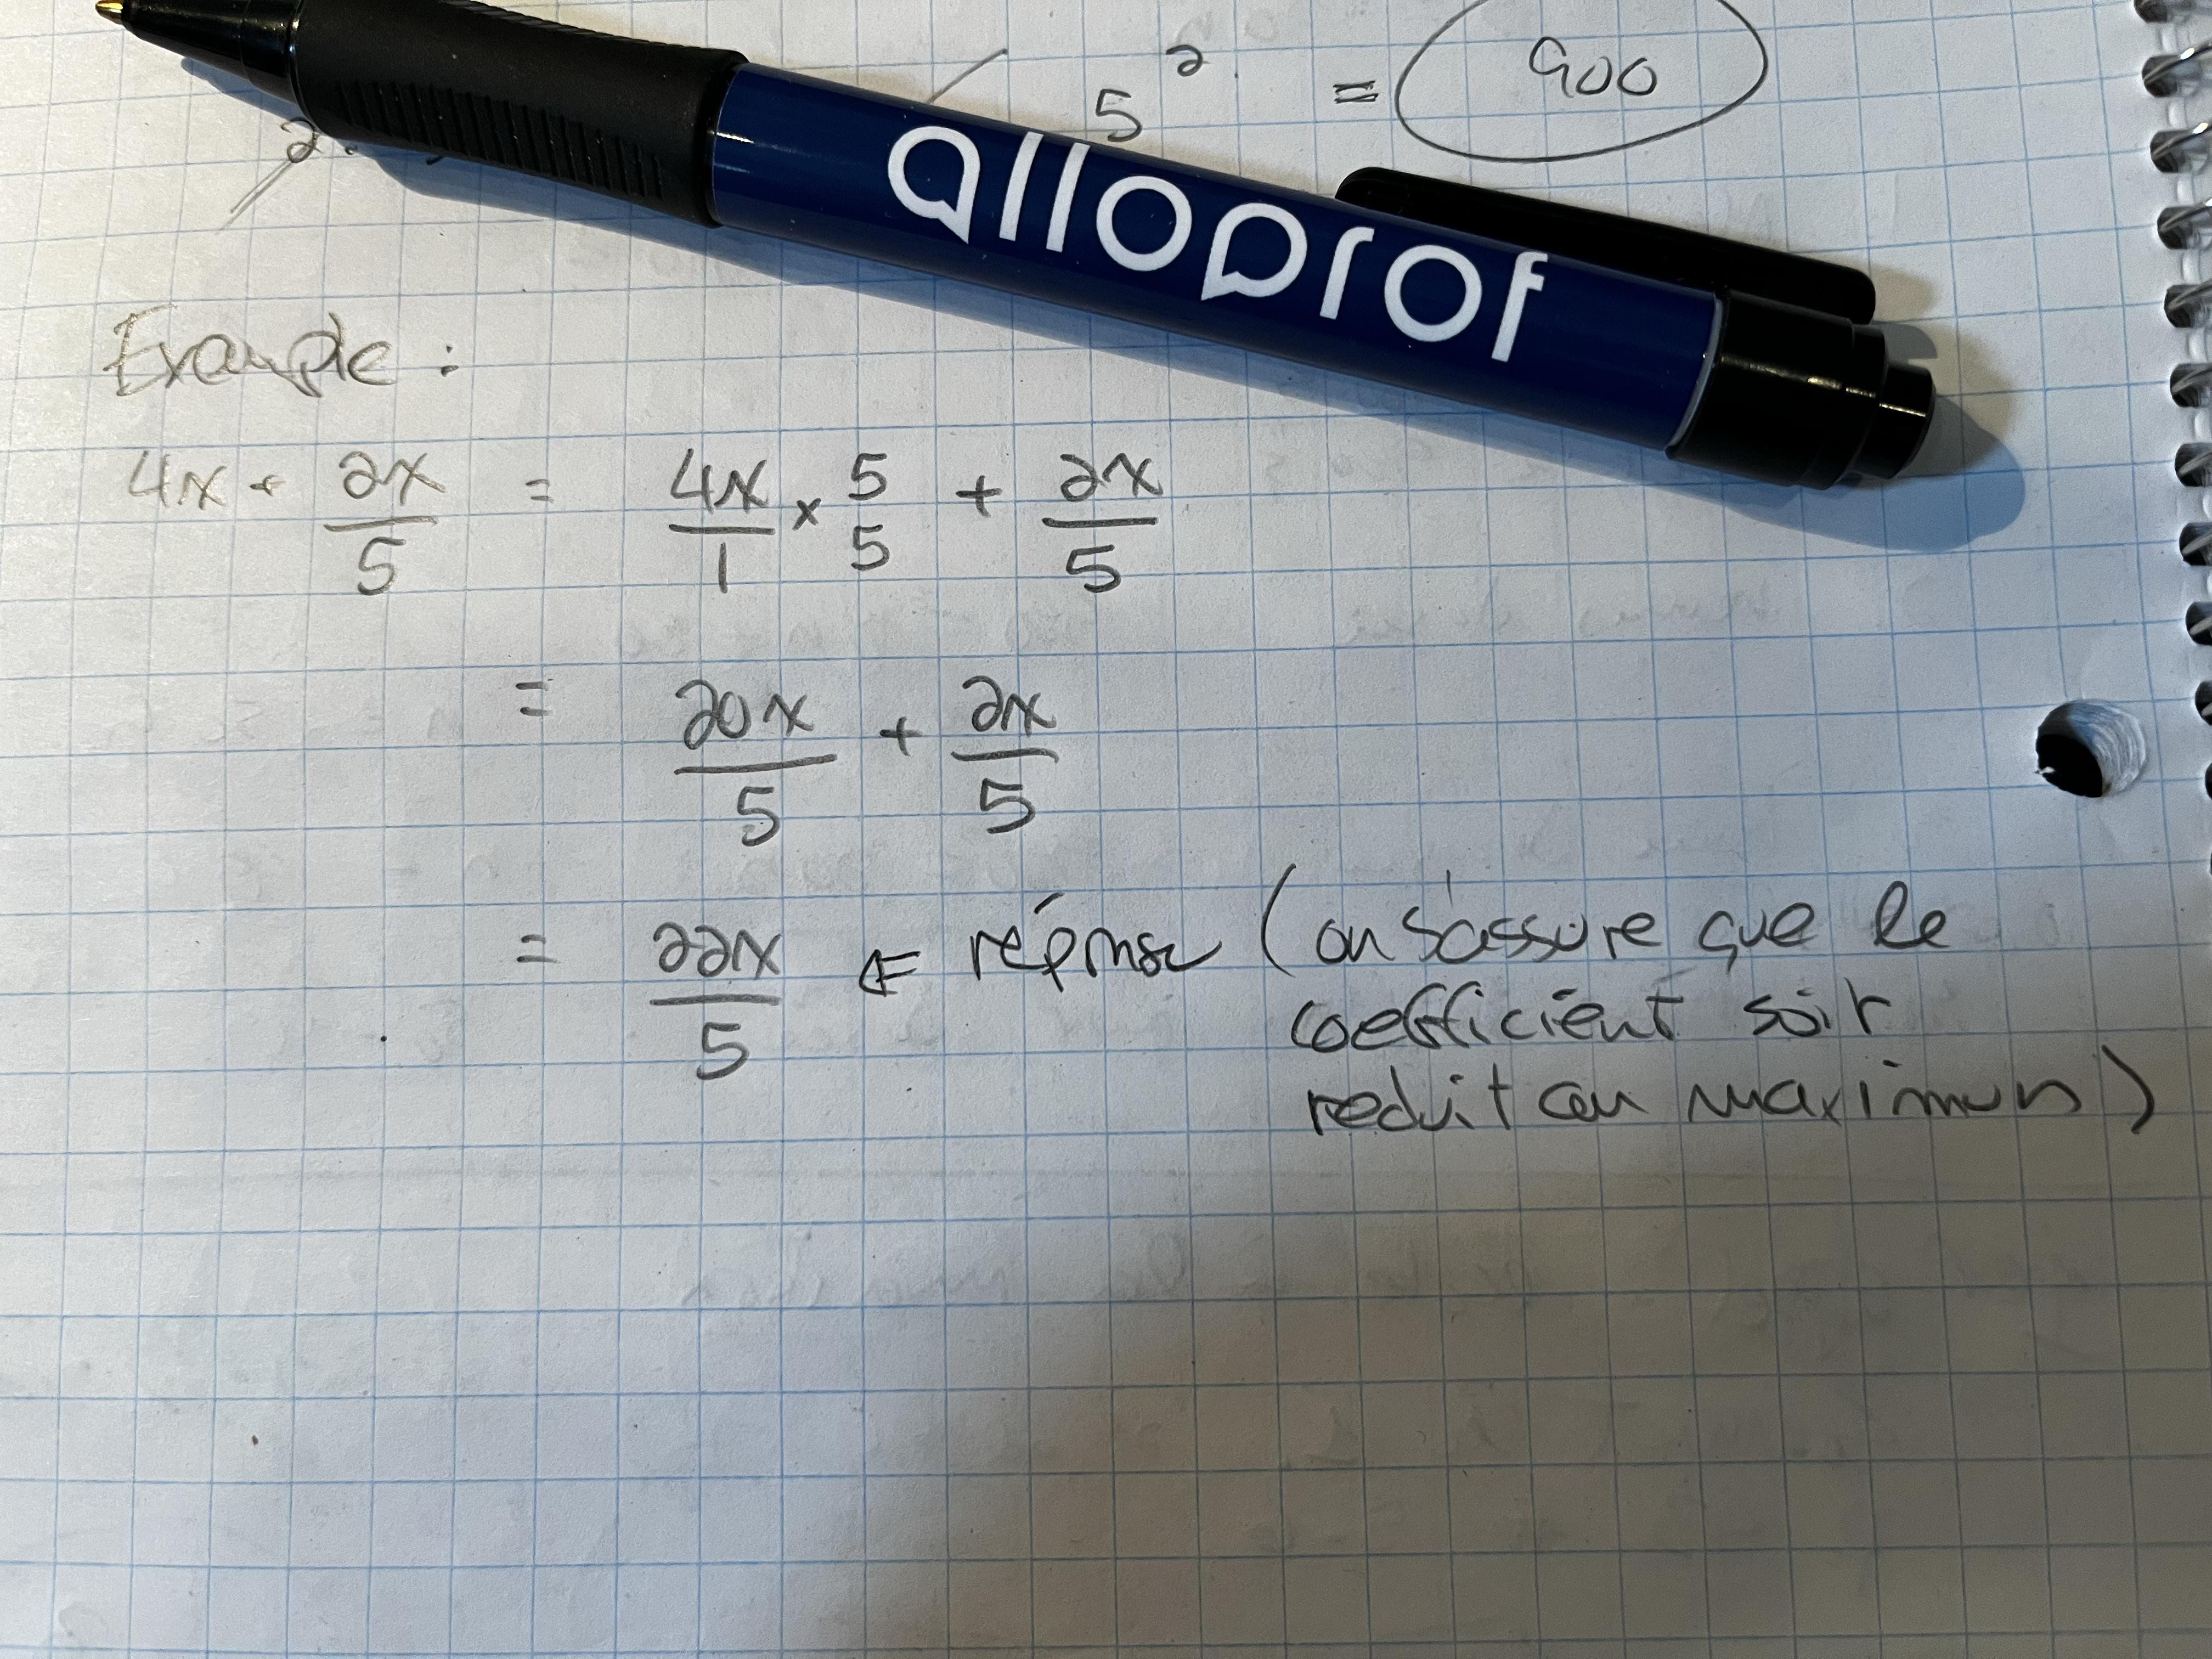 5² = 900
2.
alloprof
Example :
4x + 2x/5 = 4x/1 × 5/5 + 2x/5
= 20x/5 + 2x/5
= 22x/5 ⇐ réponse (on s'assure que le
coefficient soit
reduit au maximum)